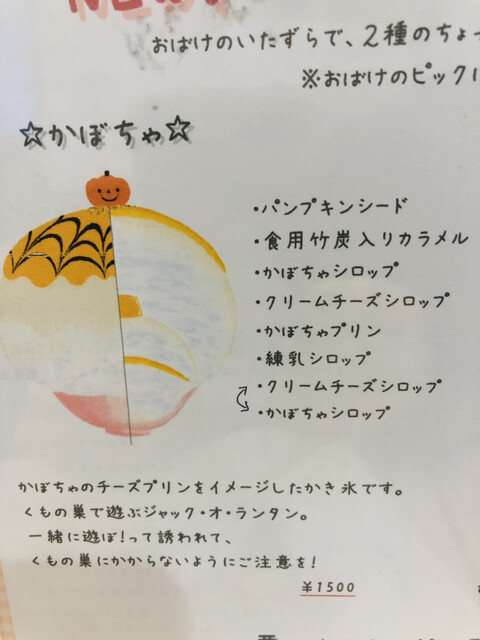 NEW!
おばけのいたずらで、2種のちょっ
※おばけのピックに
☆かぼちゃ☆
・パンプキンシード
・食用竹炭入りカラメル
・かぼちゃシロップ
・クリームチーズシロップ
・かぼちゃプリン
・練乳シロップ
・クリームチーズシロップ
・かぼちゃシロップ
かぼちゃのチーズプリンをイメージしたかき氷です。
くもの巣で遊ぶジャック・オ・ランタン。
一緒に遊ぼ!って誘われて、
くもの巣にかからないようにご注意を!
¥1500